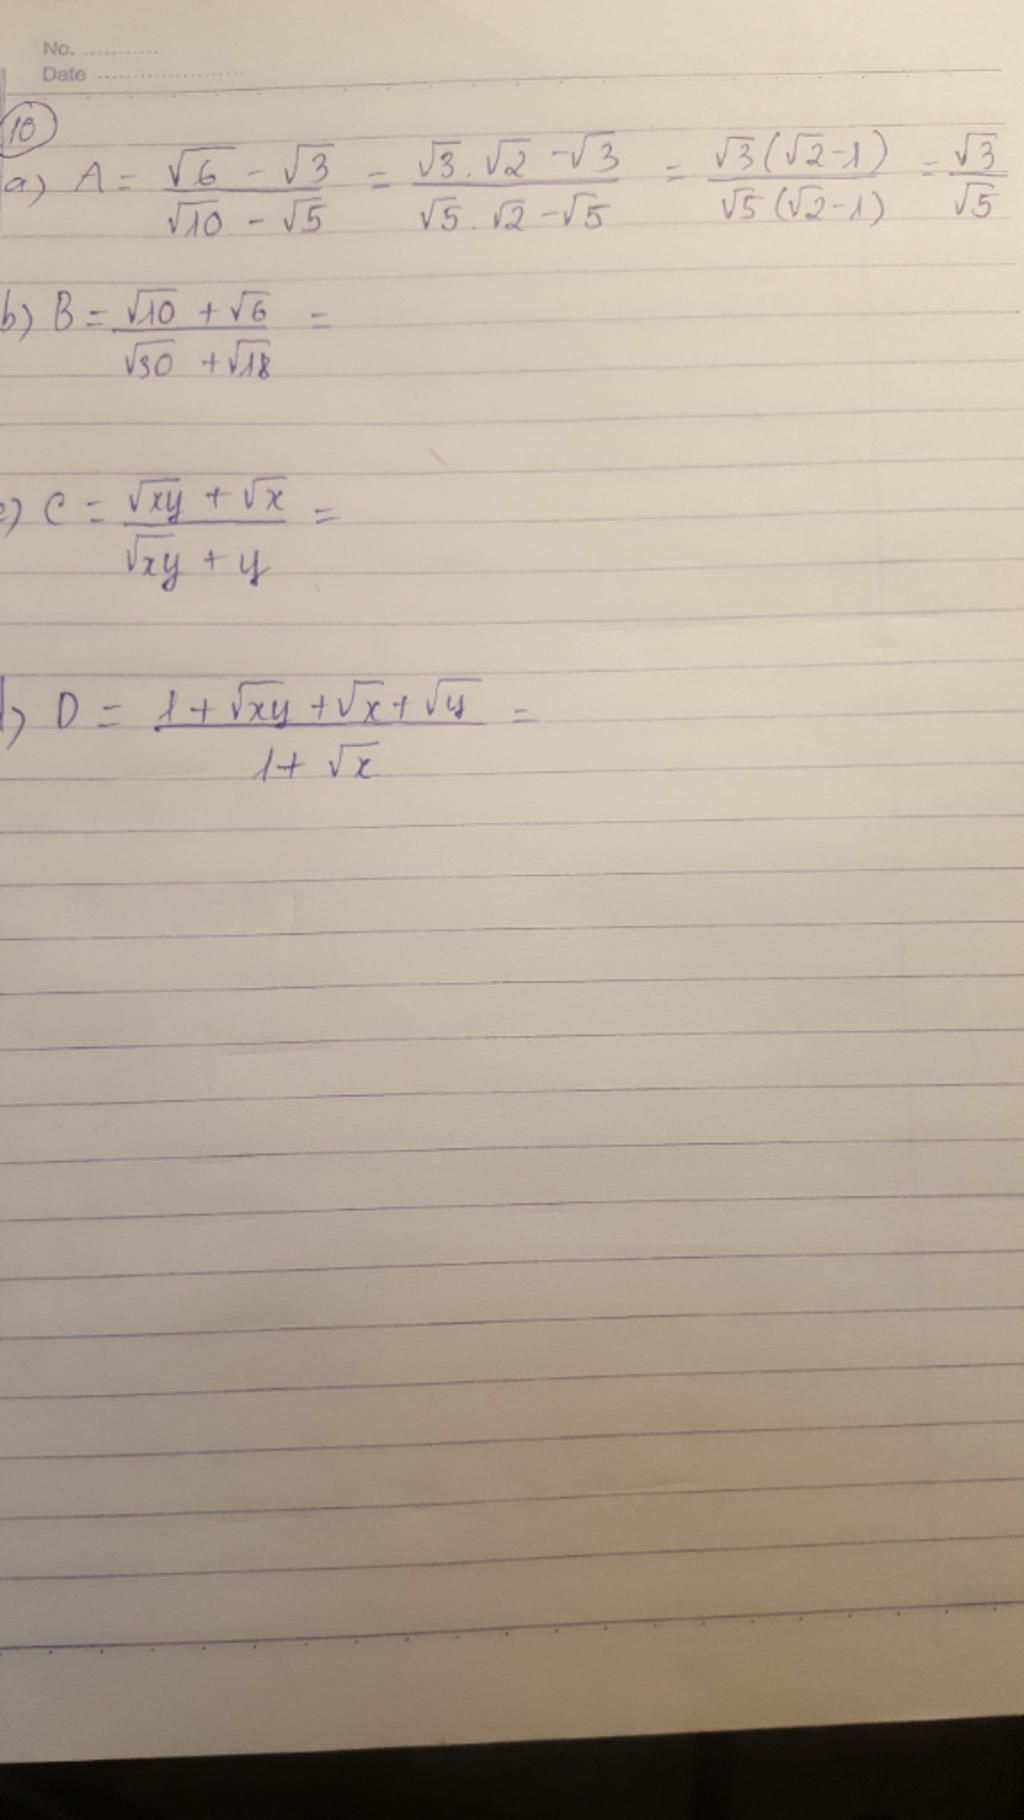 No. ...........
Date .....................
10
a) A = (√6 - √3)/(√10 - √5) = (√3.√2 - √3)/(√5.√2 - √5) = √3(√2-1)/√5(√2-1) = √3/√5
b) B = (√10 + √6)/(√30 + √18) =
c) C = (√xy + √x)/(√xy + y) =
d) D = (1 + √xy + √x + √y)/(1 + √x) =